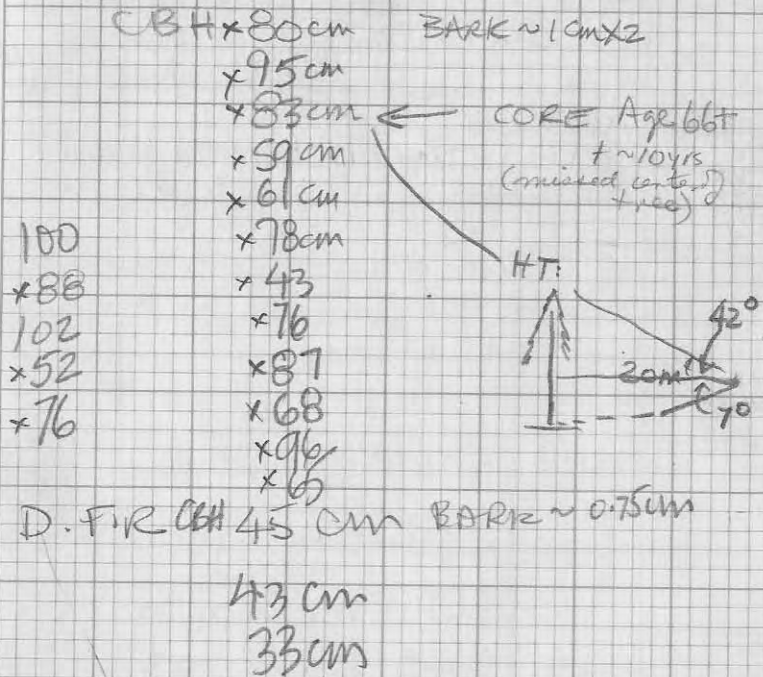 CBH x 80cm BARK ~ 1cm X2
x 95cm
x 83cm ← CORE Age 66+
+ ~10yrs
(missed center of tree)
x 59cm
x 61cm
x 78cm
x 43
x 76
x 87
x 68
x 96
x 65
100
x 88
102
x 52
x 76
HT:
42°
20m
7°
D. FIR CBH 45 cm BARK ~ 0.75cm
43 cm
33cm